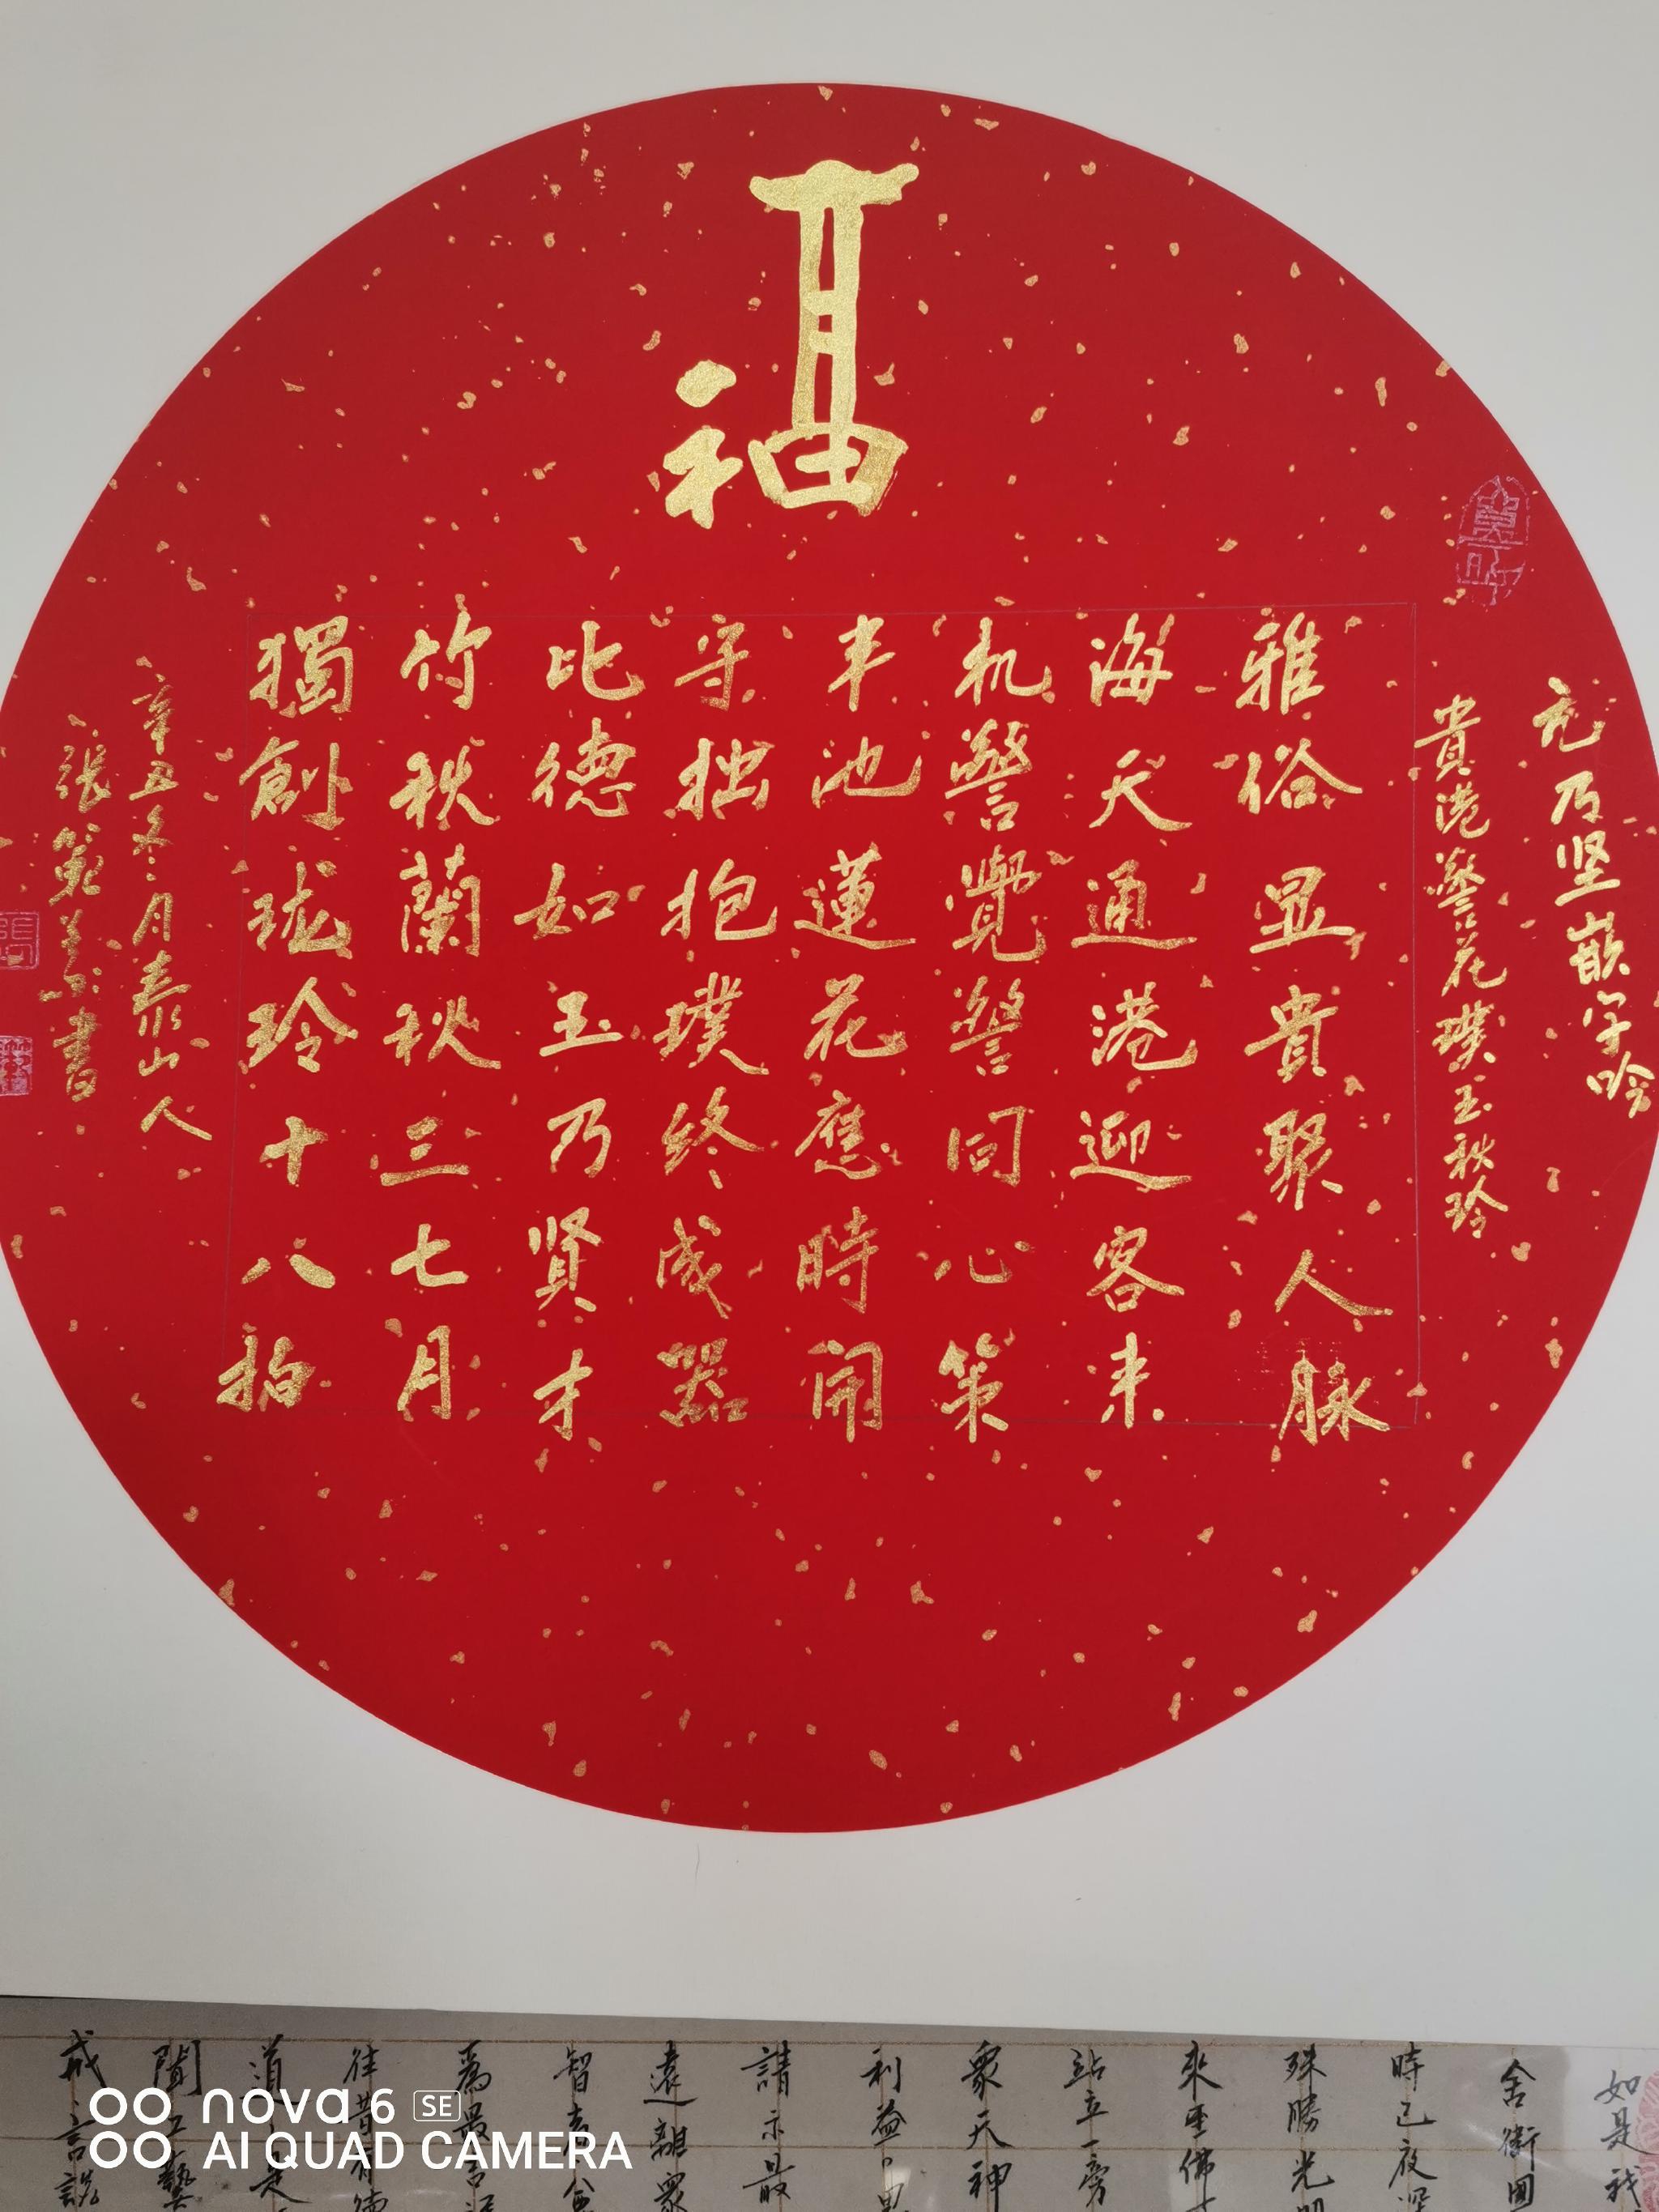 福
元乃坚嵌字吟
貴港警花璞玉秋玲
雅俗显貴聚人脉
海天通港迎客来
机警覺警同心策
半池蓮花應時開
守拙抱璞终成器
比德如玉乃贤才
竹秋蘭秋三七月
獨創珑玲十八拍
辛丑冬月泰山人
張 書
如是我
舍衛国
時已夜深
殊勝光明
來至佛
站立一旁
衆天神
利益
請示最
遠離衆
智者
爲最
往昔有德
道
聞工藝
戒言説
nova 6 SE
AI QUAD CAMERA